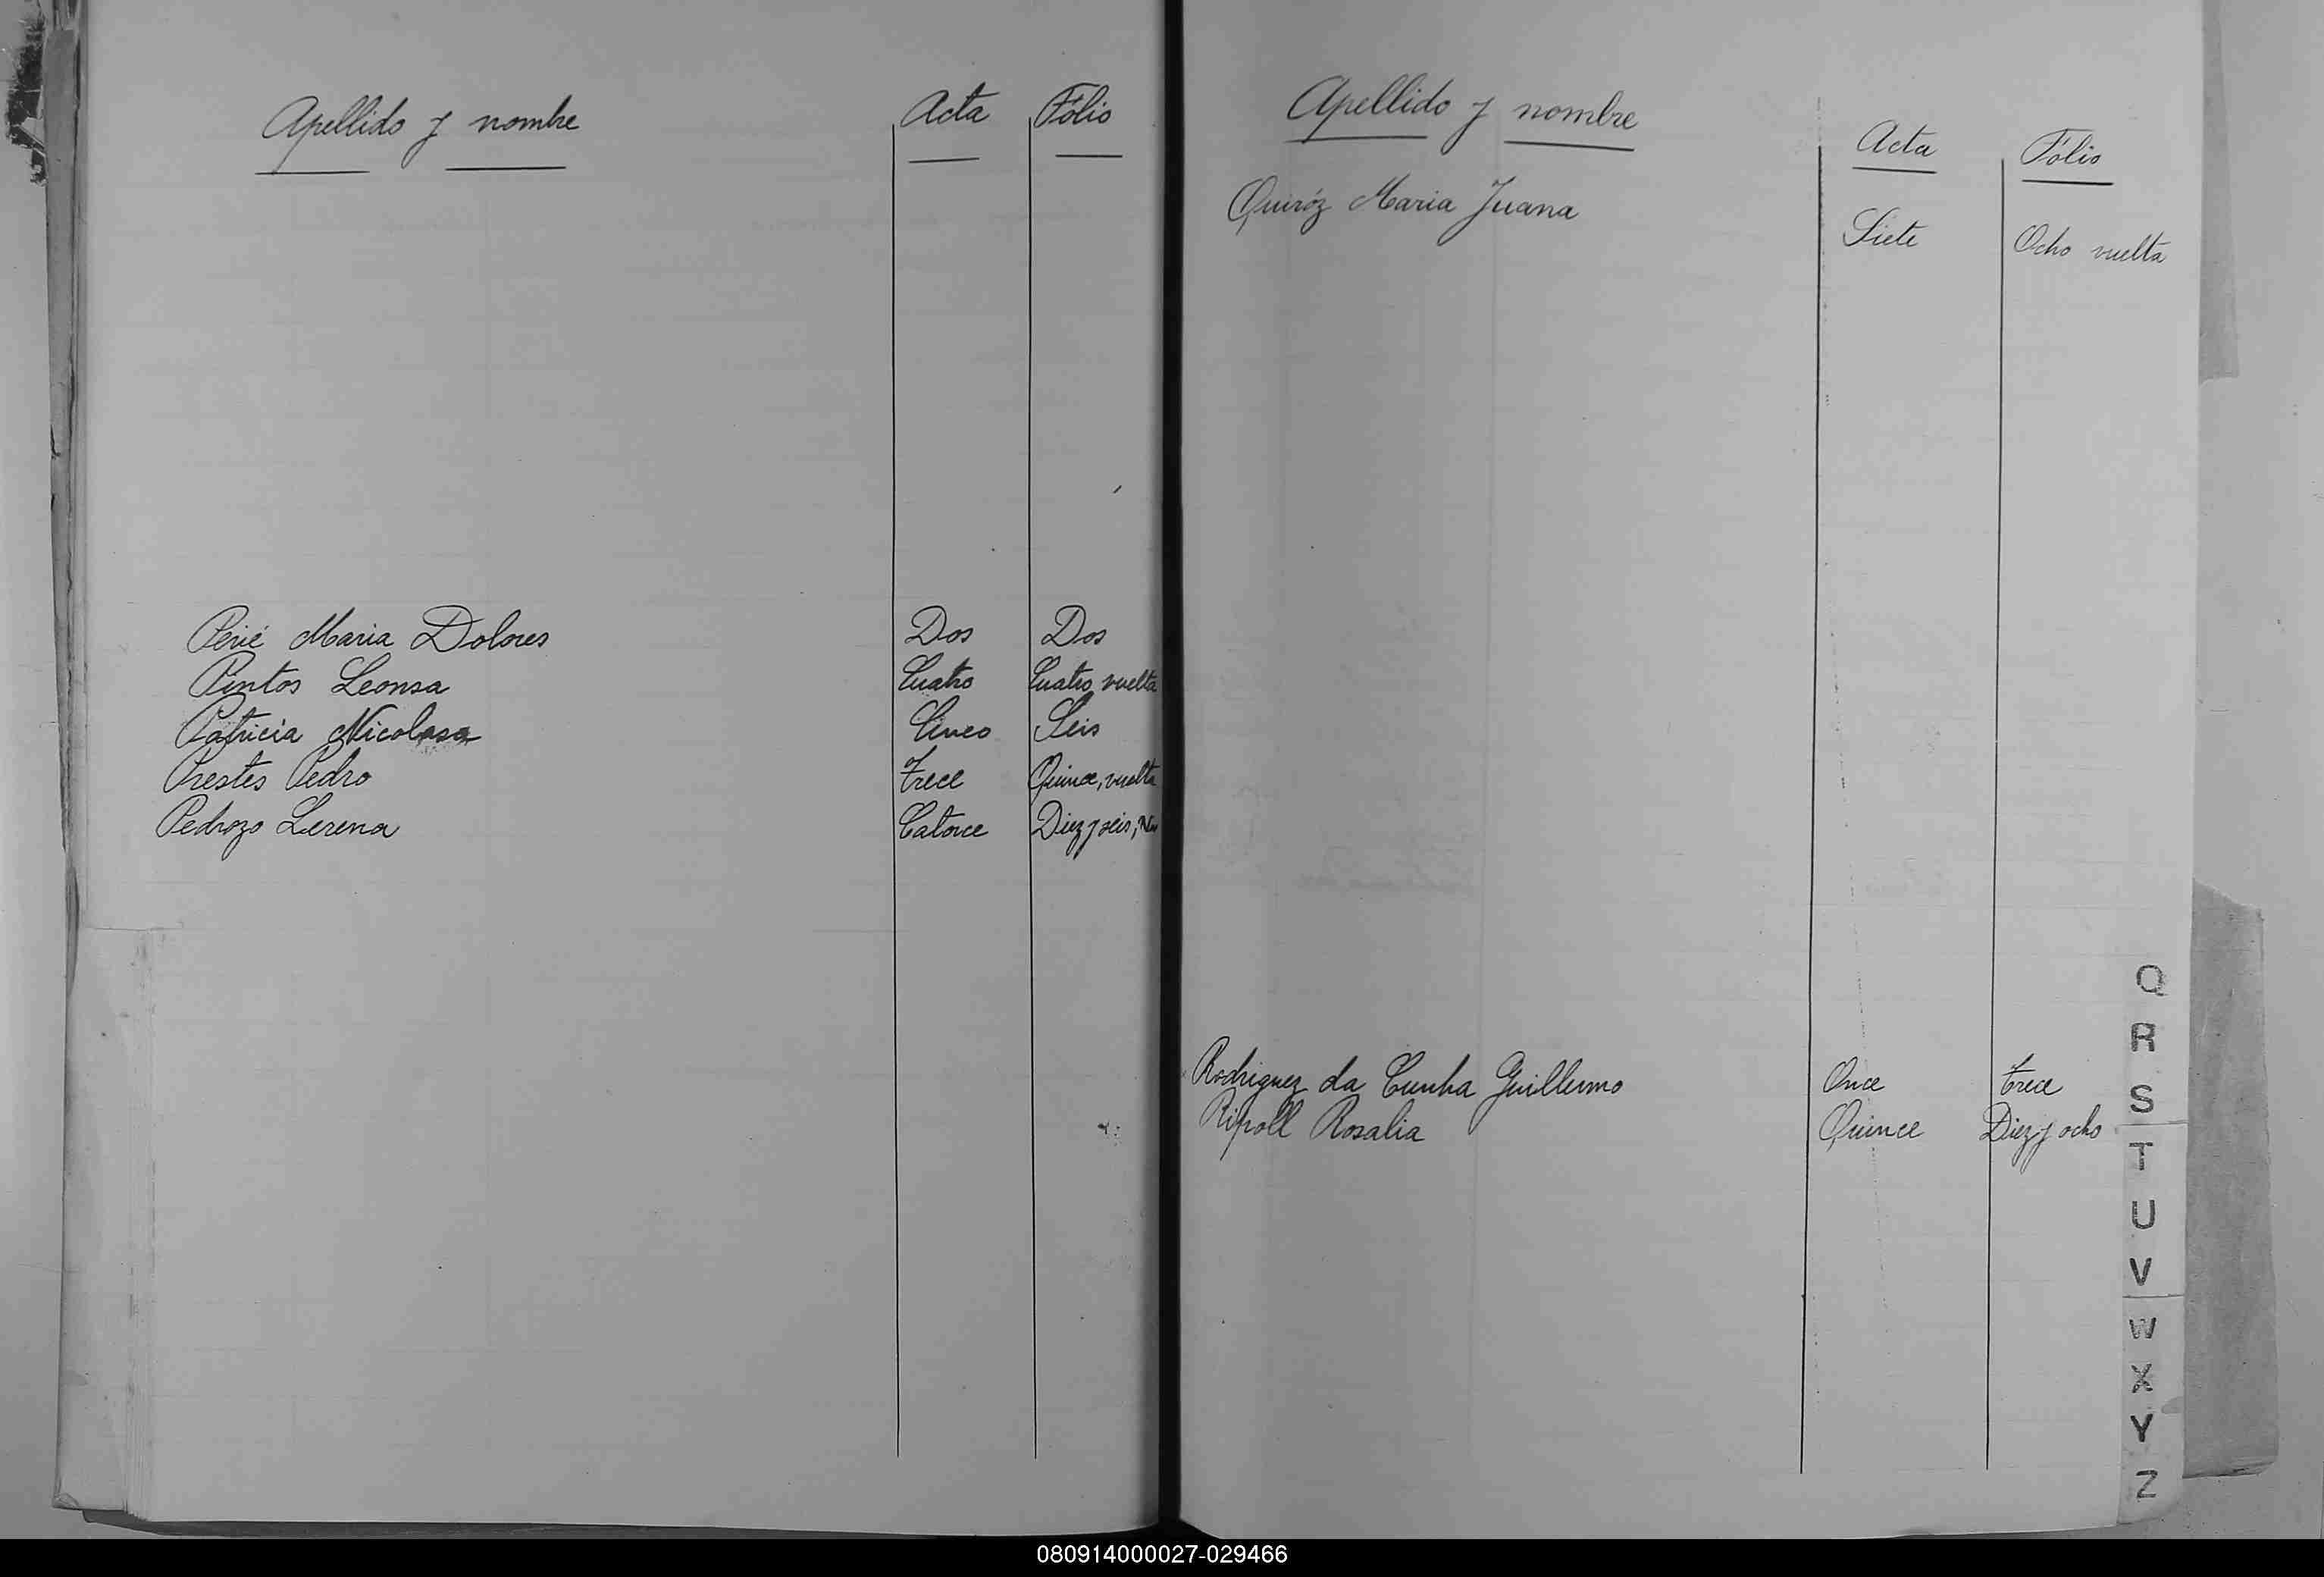 Apellido y nombre Acta Fólio
Perié Maria Dolores Dos Dos
Pintos Leonsa Cuatro Cuatro vuelta
Patricia Nicolasa Cinco Seis
Prestes Pedro Trece Quince, vuelta
Pedrozo Lerena Catorce Diez y seis,
Apellido y nombre Acta Fólio
Quiróz Maria Juana Siete Ocho vuelta
Rodriguez da Cunha Guillermo Once Trece
Ripoll Rosalia Quince Diez y ocho
Q
R
S
T
U
V
W
X
Y
Z
080914000027-029466